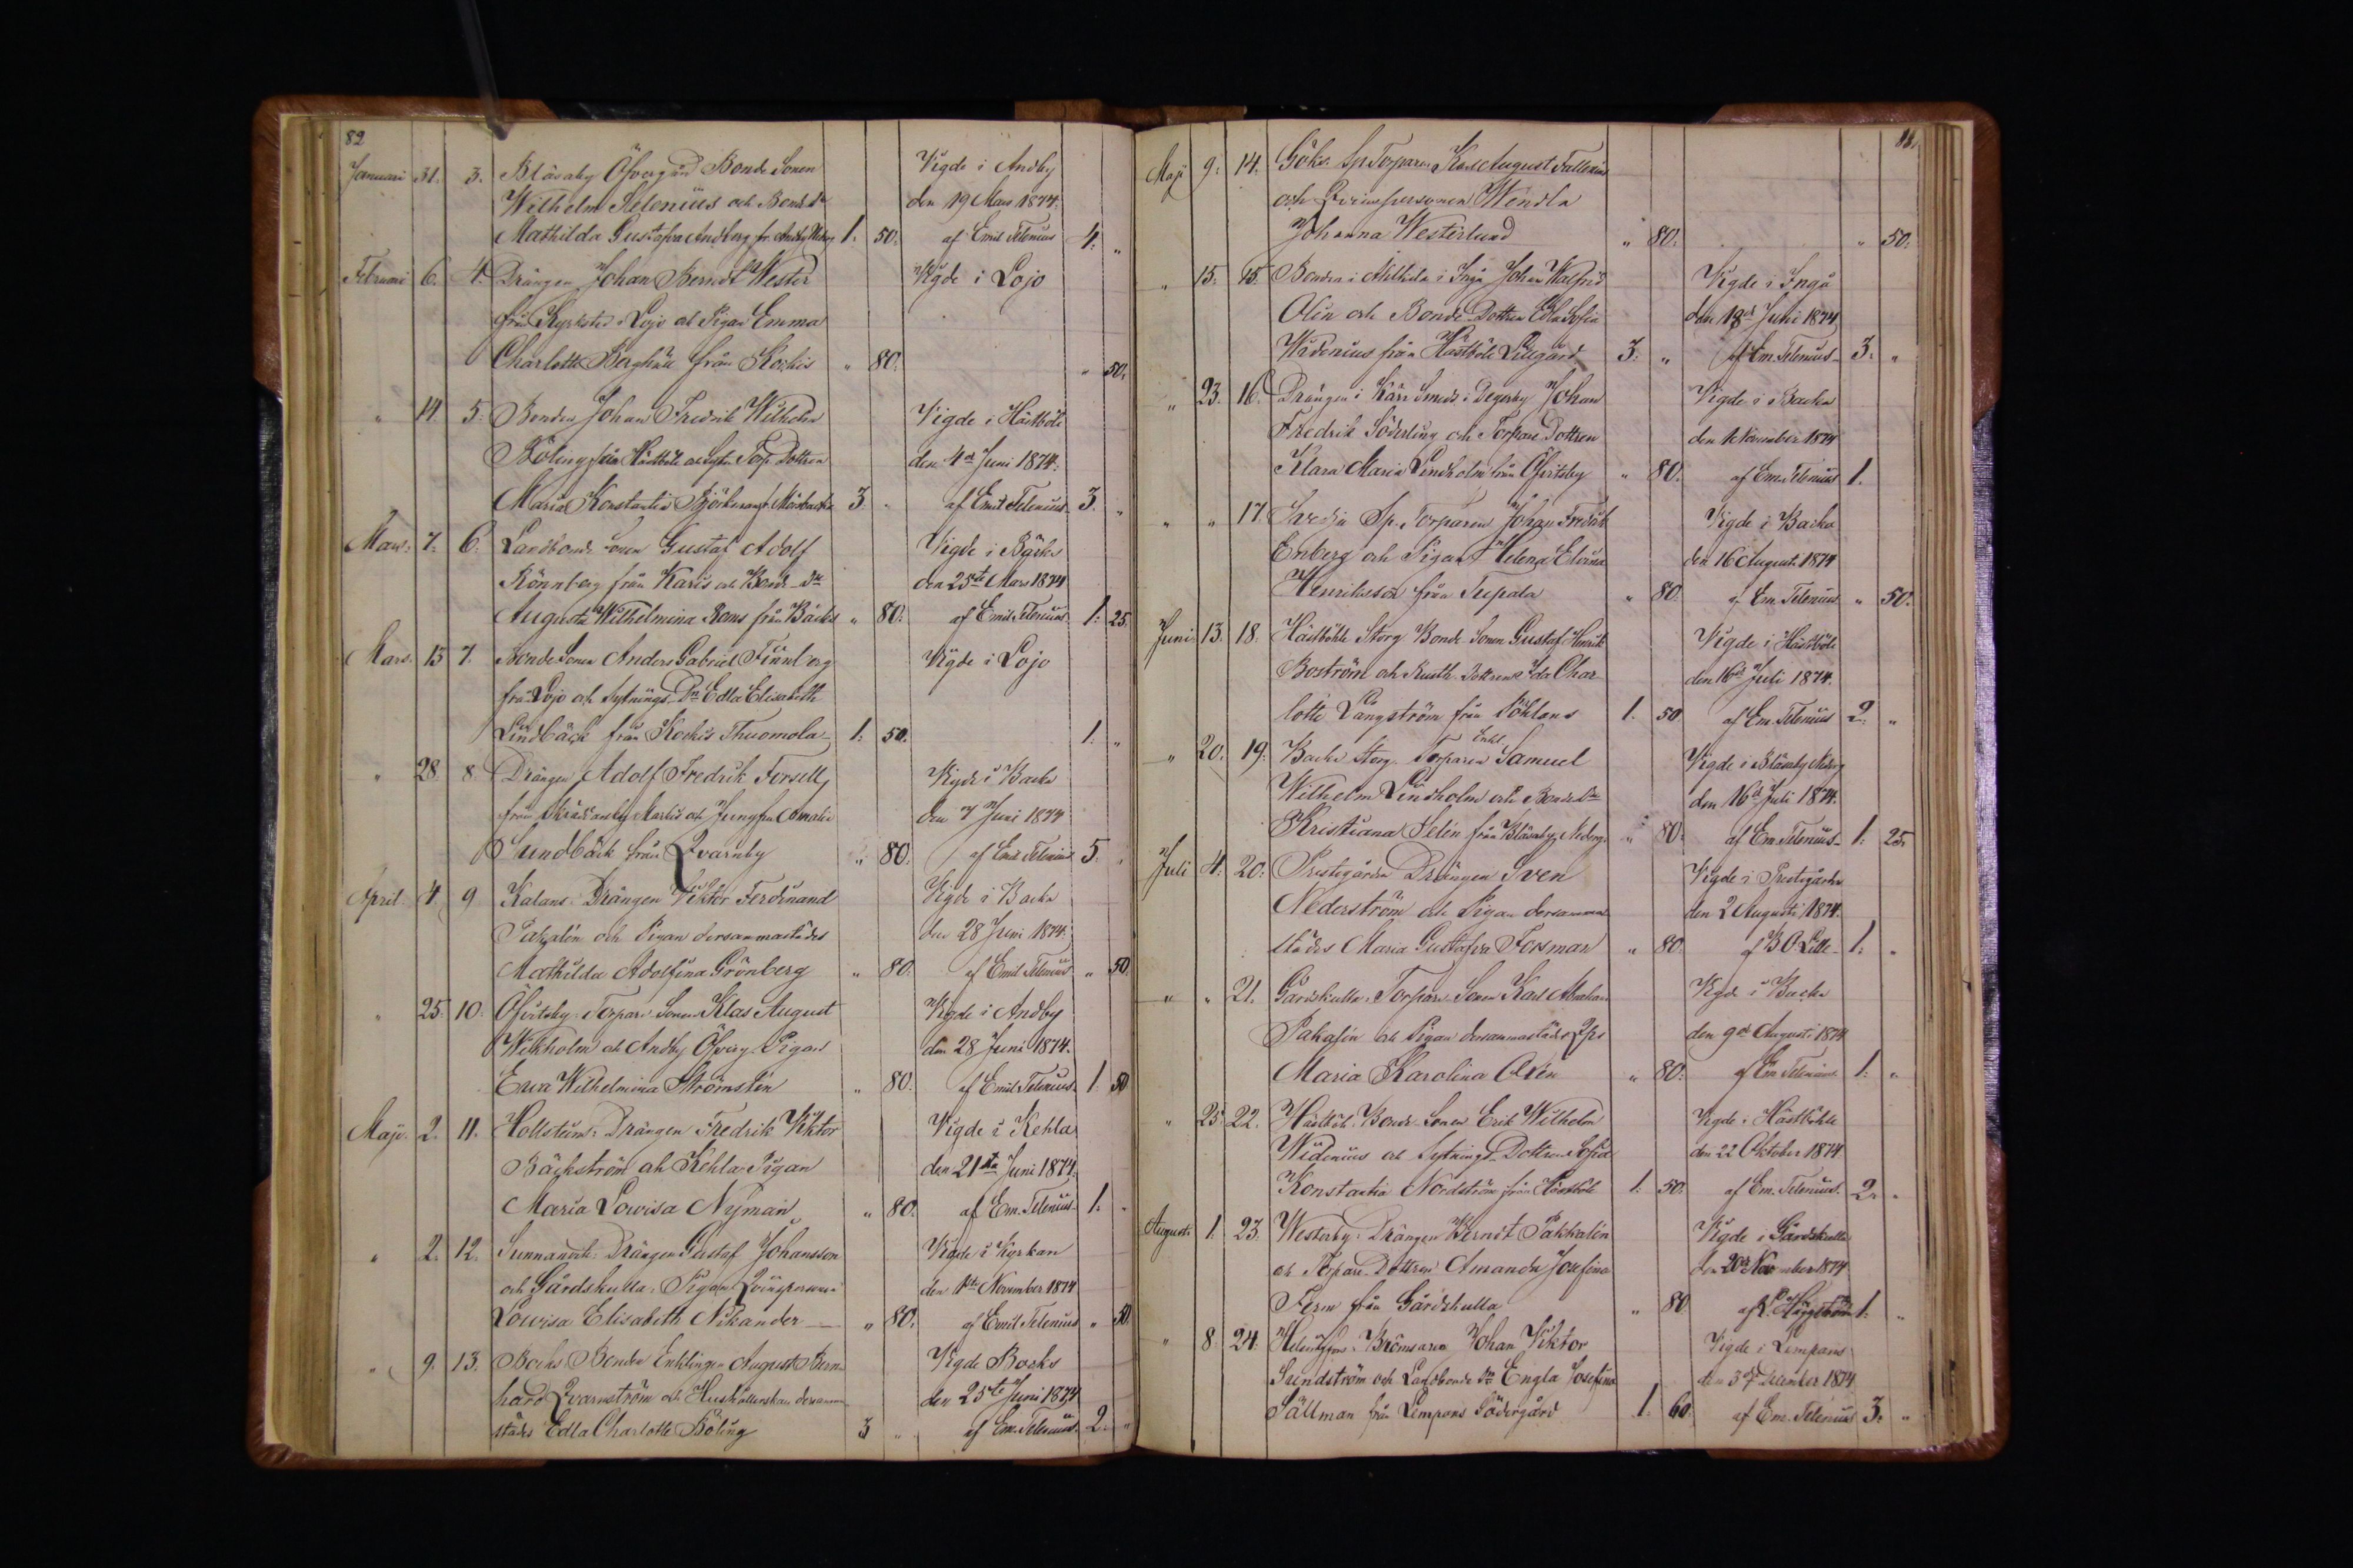 82
Januari 31. 3. Blåsaby Öfvergård Bonde Sonen Vigde i Andby
Wilhelm Selenius och Bonde Dr den 19 Mars 1874.
Mathilda Gustafva Andberg fr. Andby 1. 50. af Emil Telenius 4. "
Februari 6. 4. Drängen Johan Berndt Wester Vigde i Lojo
från Kyrkstad i Lojo och Pigan Emma
Charlotta Berghäll från Kockis " 80. " 50.
" 14. 5. Bonden Johan Fredrik Wilhelm Vigde i Hästböle
Böling från Hästböle och Torp. Dottren den 4de Juni 1874.
Maria Konstantia 3. " af Emil Telenius 3. "
Mars. 7. 6. Landbonde Sonen Gustaf Adolf Vigde i Bäcks
Rönnberg från Karis och Bonde Dr den 25te Mars 1874
Augusta Wilhelmina Roms från Bäcks " 80. af Emil Telenius 1. 25.
Mars. 15 7. Bonde Sonen Anders Gabriel Finnberg Vigde i Lojo
från Lojo och Sytnings Dr Edla Elisabeth
Lindbäck från Kockis Thuomola 1. 50. 1. "
" 28. 8. Drängen Adolf Fredrik Forsell, Vigde i Backs
från och Jungfru Amalia den 7 Juni 1874
Sundbäck från Qvarnby " 80. af Emil Telenius 5. "
April 4. 9 Kalans Drängen Viktor Ferdinand Vigde i Backs
Pakalén och Pigan dersammastädes den 28 Juni 1874.
Mathilda Adolfina Grönberg " 80. af Emil Telenius " 50.
" 25. 10. Öfvitsby Torpare Sonen Klas August Vigde i Andby
Wikholm och Andby Öfverg. Pigan den 28 Juni 1874.
Ewa Wilhelmina Strömsten " 80. af Emil Telenius 1. 50
Maji. 2. 11. Hollstens Drängen Fredrik Viktor Vigde i Kehla
Bäckström och Kehla Pigan den 21sta Juni 1874.
Maria Lowisa Nyman " 80. af Em. Telenius 1. "
" 2. 12. Sunnanvik Drängen Gustaf Johansson Vigde i Kyrkan
och Gårdskulla Pigan Qvinspersonen den 1sta November 1874
Lowisa Elisabeth Nikander " 80. af Emil Telenius " 50.
" 9. 13. Backs Bonden Enklingen August Bern- Vigde Backs
hard Qvarnström och Hushållerskan dersamma- den 25te Juni 1874
städes Edla Charlotta Böling 3 " af Em. Telenius 2. "
Maji 9. 14. Göks Sp. Torparen Karl August Fallenius
och Qvinspersonen Wendla
Johanna Westerlund " 80. " 50.
" 15. 15. Bonden i Ingå Johan Walfrid Vigde i Ingå
Olin och Bonde Dottren Edla Sofia den 18de Juni 1874
Widenius från Hästböle Lillgård 3. " af Em. Telenius 3. "
" 23. 16. Drängen i Kärr Smeds i Degerby Johan Vigde i Backa
Fredrik Söderling och Torpare Dottren den 1 November 1874
Klara Maria Lindholm från Öfvitsby " 80. af Em. Telenius 1.
" " 17. Svedja Sp. Torparen Johan Fredrik Vigde i Backa
Enberg och Pigan Helena Elvina den 16 Augusti 1874
Henriksson från Tupala " 80. af Em. Telenius " 50.
Juni 13. 18. Hästböhle Storg Bonde Sonen Gustaf Henrik Vigde i Hästböle
Boström och Rusth. Dottren Ida Char- den 16de Juli 1874.
lotta Långström från Pöklans 1. 50 af Em. Telenius 2. "
" 20. 19. Backs Storg. Torparen Enkl Samuel Vigde i Blåsaby Nederg
Wilhelm Lindholm och Bonde Dr den 16de Juli 1874.
Kristiana Selin från Blåsaby Nederg. " 80. af Em. Telenius 1. 25.
Juli 4. 20. Prestgårds Drängen Sven Vigde i Prestgården
Nederström och Pigan dersamma- den 2 Augusti 1874.
städes Maria Gustafva Forsman " 80. af B O Lille 1. "
" " 21. Gårdskulla Torpare Sonen Karl Abraham Vigde i Backa
Pakalén och Pigan dersammastädes den 9de Augusti 1874
Maria Karolina Olin " 80. af Em Telenius 1. "
" 25. 22. Hästböle Bonde Sonen Erik Wilhelm Vigde i Hästböhle
Widenius och Sytnings Dottren Sofia den 22 Oktober 1874
Konstantia Nordström från Hästböle 1. 50. af Em. Telenius. 2. "
Augusti 1. 23. Westerby Drängen Berndt Pakkalén Vigde i Gårdskulla
och Torpare Dottren Amanda Josefina den 20de November 1874
Ferm från Gårdskulla " 80 af Häggström 1. "
" 8. 24. Helsingfors Bromsaren Johan Viktor Vigde i Lempans
Sundström och Landbonde Dr Engla Josefina den 3de December 1874
Sällman från Lempans Södergård 1. 60. af Em. Telenius 3. "